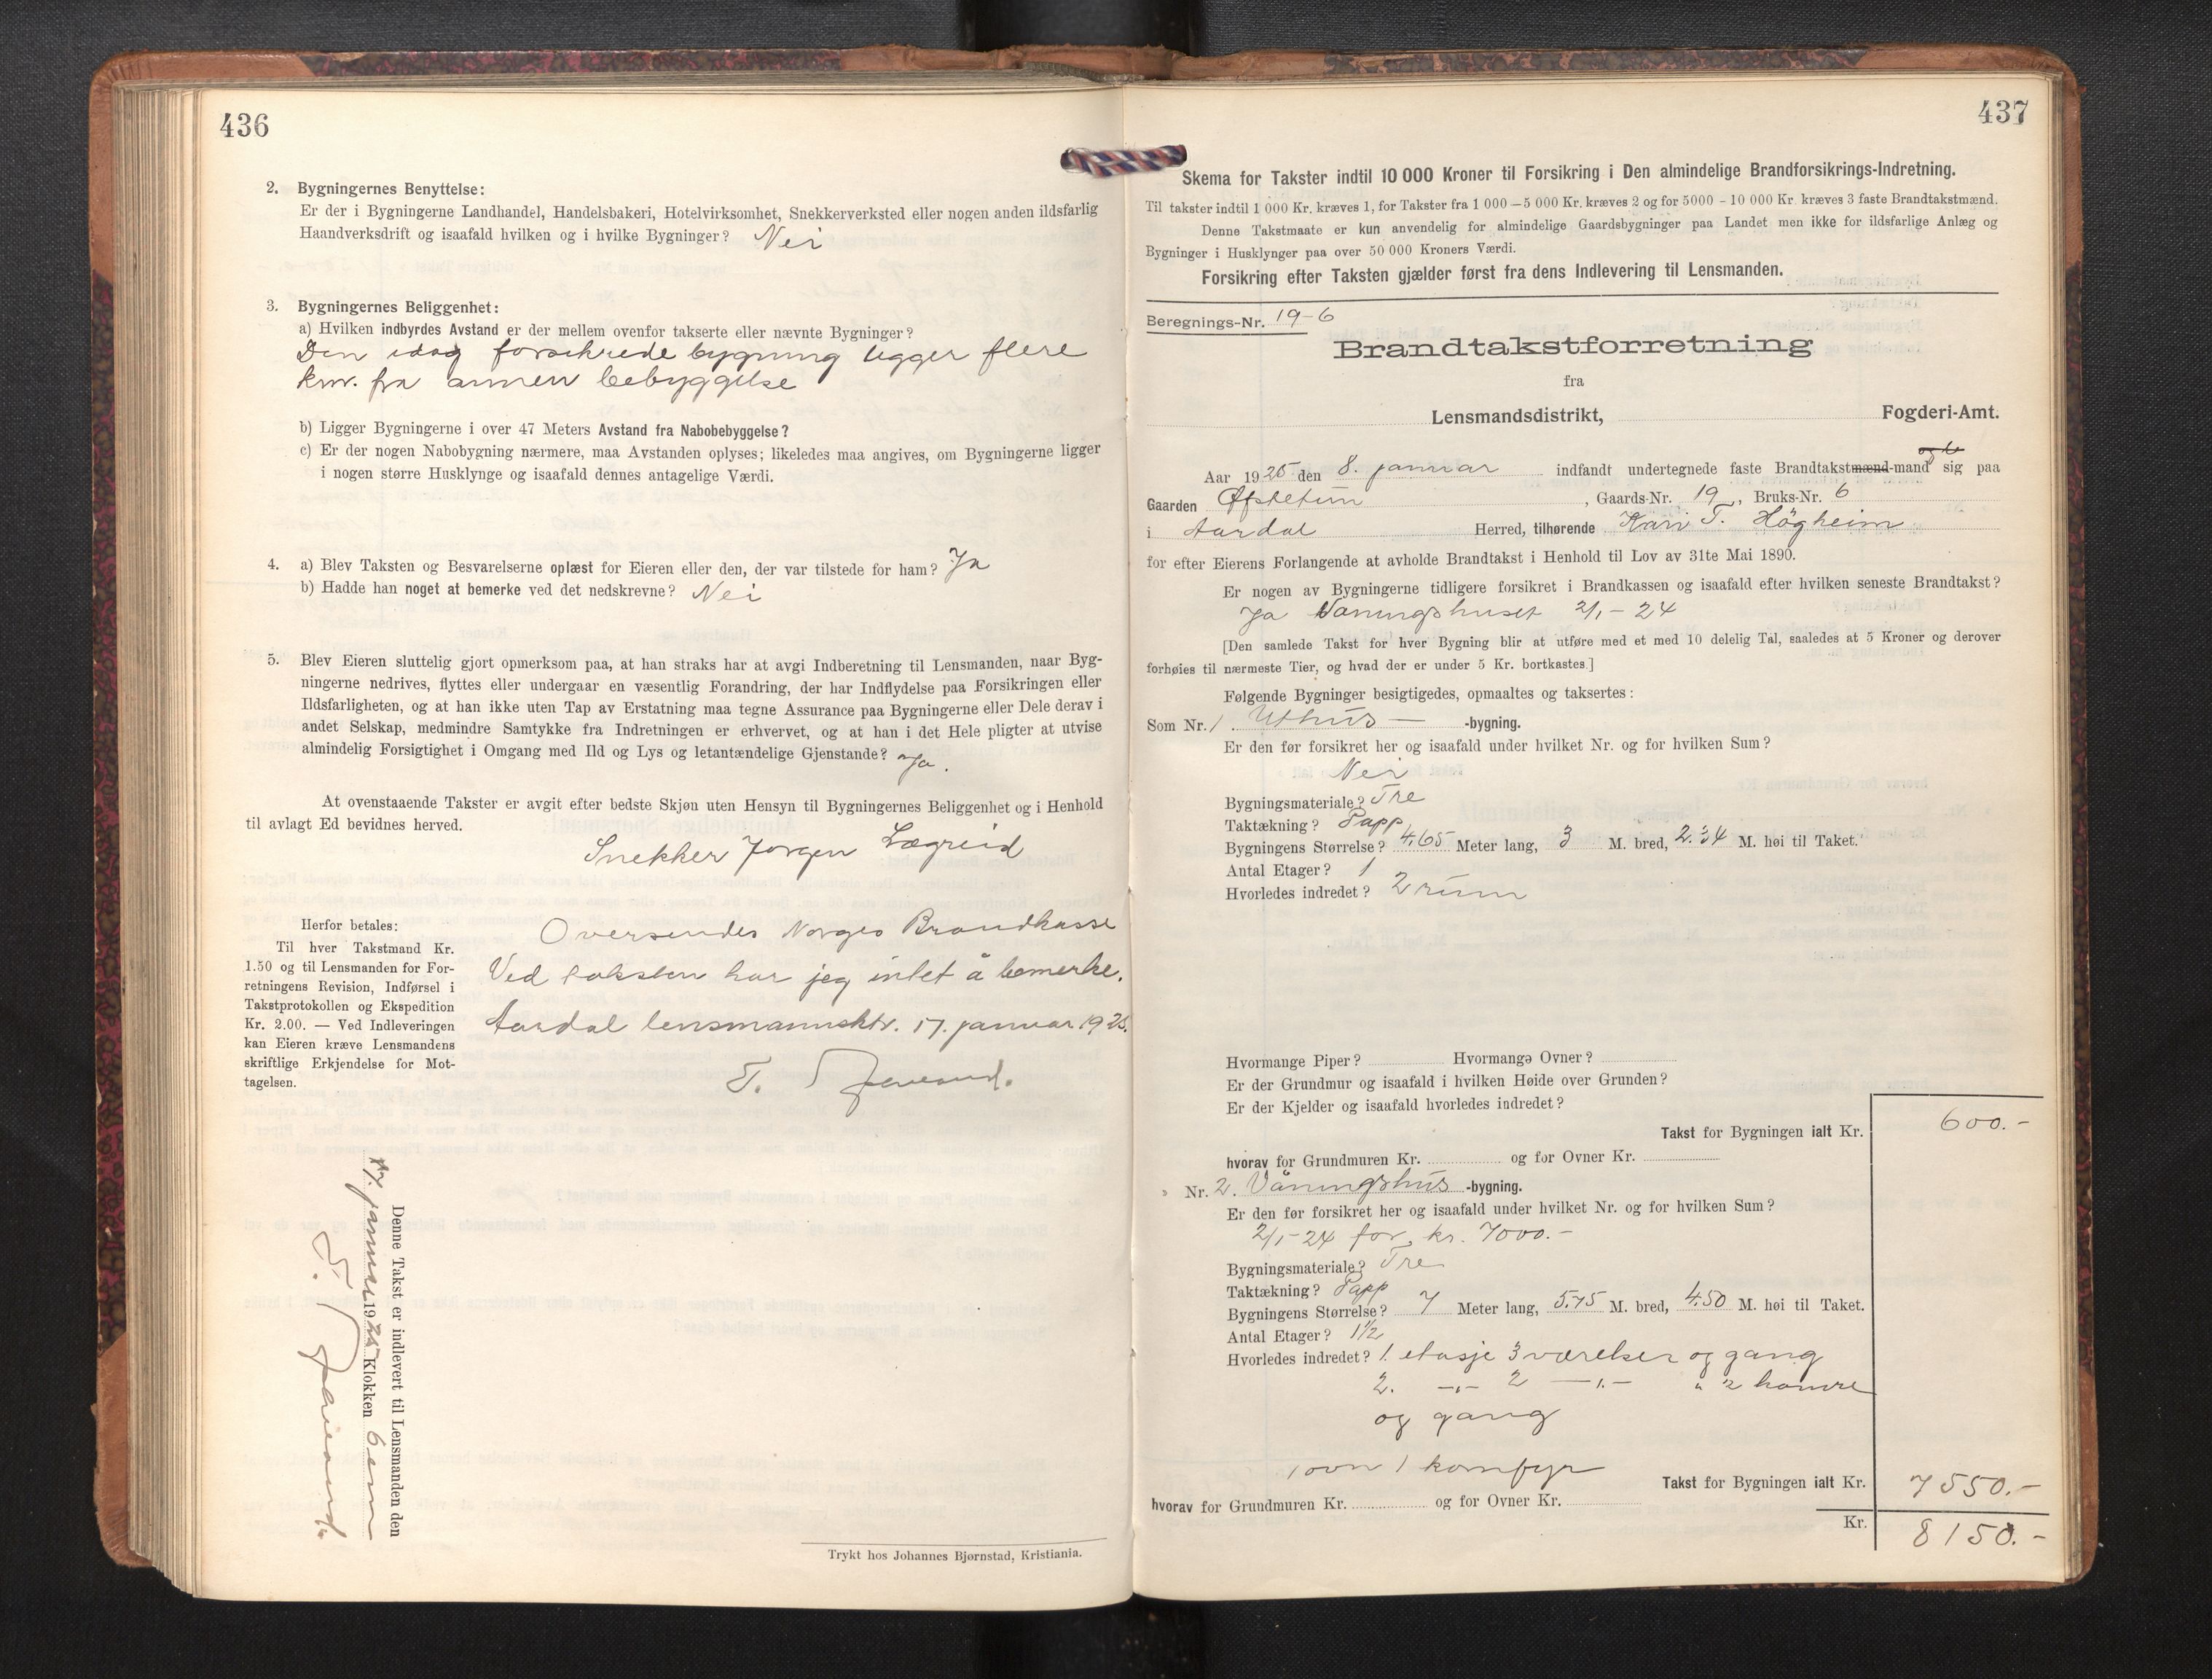 436
2. Bygningernes Benyttelse:
Er der i Bygningerne Landhandel, Handelsbakeri, Hotelvirksomhet, Snekkerverksted eller nogen anden ildsfarlig
Haandverksdrift og isaafald hvilken og i hvilke Bygninger? Nei
3. Bygningernes Beliggenhet:
a) Hvilken indbyrdes Avstand er der mellem ovenfor takserte eller nævnte Bygninger?
Den idag forsikrede bygning ligger flere
km. fra annen bebyggelse
b) Ligger Bygningerne i over 47 Meters Avstand fra Nabobebyggelse?
c) Er der nogen Nabobygning nærmere, maa Avstanden oplyses; likeledes maa angives, om Bygningerne ligger
i nogen større Husklynge og isaafald dennes antagelige Værdi.
4. a) Blev Taksten og Besvarelserne oplæst for Eieren eller den, der var tilstede for ham? Ja
b) Hadde han noget at bemerke ved det nedskrevne? Nei
5. Blev Eieren sluttelig gjort opmerksom paa, at han straks har at avgi Indberetning til Lensmanden, naar Byg-
ningerne nedrives, flyttes eller undergaar en væsentlig Forandring, der har Indflydelse paa Forsikringen eller
Ildsfarligheten, og at han ikke uten Tap av Erstatning maa tegne Assurance paa Bygningerne eller Dele derav i
andet Selskap, medmindre Samtykke fra Indretningen er erhvervet, og at han i det Hele pligter at utvise
almindelig Forsigtighet i Omgang med Ild og Lys og letantændelige Gjenstande? Ja.
At ovenstaaende Takster er avgit efter bedste Skjøn uten Hensyn til Bygningernes Beliggenhet og i Henhold
til avlagt Ed bevidnes herved.
Snekker Jørgen Lægreid
Herfor betales:
Til hver Takstmand Kr.
1.50 og til Lensmanden for For-
retningens Revision, Indførsel i
Takstprotokollen og Ekspedition
Kr. 2.00. — Ved Indleveringen
kan Eieren kræve Lensmandens
skriftlige Erkjendelse for Mot-
tagelsen.
Oversendes Norges Brandkasse
Ved taksten har jeg intet å bemerke.
Aardal lensmannsktr. 17. januar 1925.
T.
Denne Takst er indlevert til Lensmanden den
17. januar 1925 Klokken 6 em
T.
Trykt hos Johannes Bjørnstad, Kristiania.
437
Skema for Takster indtil 10 000 Kroner til Forsikring i Den almindelige Brandforsikrings-Indretning.
Til takster indtil 1 000 Kr. kræves 1, for Takster fra 1 000 — 5 000 Kr. kræves 2 og for 5000 - 10 000 Kr. kræves 3 faste Brandtakstmænd.
Denne Takstmaate er kun anvendelig for almindelige Gaardsbygninger paa Landet men ikke for ildsfarlige Anlæg og
Bygninger i Husklynger paa over 50 000 Kroners Værdi.
Forsikring efter Taksten gjælder først fra dens Indlevering til Lensmanden.
Beregnings-Nr. 19-6
Brandtakstforretning
fra
Lensmandsdistrikt, Fogderi-Amt.
Aar 1925 den 8. januar indfandt undertegnede faste Brandtakstmænd-mand sig paa
Gaarden Ofstetun, Gaards-Nr. 19, Bruks-Nr. 6
i Aardal Herred, tilhørende Kari T. Högheim
for efter Eierens Forlangende at avholde Brandtakst i Henhold til Lov av 31te Mai 1890.
Er nogen av Bygningerne tidligere forsikret i Brandkassen og isaafald efter hvilken seneste Brandtakst?
Ja Vaningshuset 2/1-24
[Den samlede Takst for hver Bygning blir at utføre med et med 10 delelig Tal, saaledes at 5 Kroner og derover
forhøies til nærmeste Tier, og hvad der er under 5 Kr. bortkastes.]
Følgende Bygninger besigtigedes, opmaaltes og taksertes:
Som Nr. 1 Uthus — -bygning.
Er den før forsikret her og isaafald under hvilket Nr. og for hvilken Sum?
Nei
Bygningsmateriale? Tre
Taktækning? Papp
Bygningens Størrelse? 4.65 Meter lang, 3 M. bred, 2.34 M. høi til Taket.
Antal Etager? 1
Hvorledes indredet? 2 rum
Hvormange Piper? Hvormange Ovner?
Er der Grundmur og isaafald i hvilken Høide over Grunden?
Er der Kjelder og isaafald hvorledes indredet?
Takst for Bygningen ialt Kr. 600.-
hvorav for Grundmuren Kr. og for Ovner Kr.
» Nr. 2. Våningshus -bygning.
Er den før forsikret her og isaafald under hvilket Nr. og for hvilken Sum?
2/1-24 for kr. 7000.-
Bygningsmateriale? Tre
Taktækning? Papp
Bygningens Størrelse? 7 Meter lang, 5.75 M. bred, 4.50 M. høi til Taket.
Antal Etager? 1 1/2
Hvorledes indredet? 1. etasje 3 værelser og gang
2. -"- 2 -"- " 2 kamre
og gang
1 ovn 1 komfyr
Takst for Bygningen ialt Kr. 7550.-
hvorav for Grundmuren Kr. og for Ovner Kr.
Kr. 8150.-